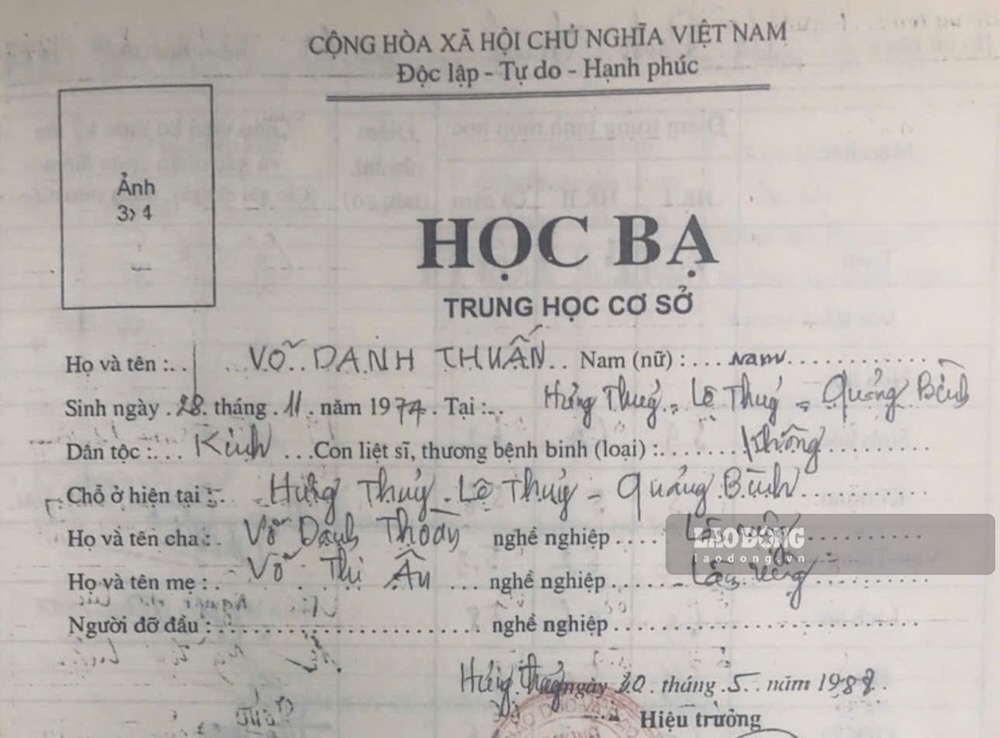 CỘNG HÒA XÃ HỘI CHỦ NGHĨA VIỆT NAM
Độc lập - Tự do - Hạnh phúc
Ảnh
3x4
HỌC BẠ
TRUNG HỌC CƠ SỞ
Họ và tên :.. VÕ DANH THUẤN.. Nam (nữ) :.... Nam..............
Sinh ngày .28. tháng .11. năm 1974. Tại :.. Hưng Thuỷ - Lệ Thuỷ - Quảng Bình
Dân tộc :... Kinh ...Con liệt sĩ, thương bệnh binh (loại) :........ Không
Chỗ ở hiện tại : Hưng Thuỷ - Lệ Thuỷ - Quảng Bình
Họ và tên cha : Võ Danh Thoàn nghề nghiệp ....
LAO ĐỘNG
laodong.vn
Họ và tên mẹ : Võ Thị Ân nghề nghiệp ....... Làm ruộng
Người đỡ đầu :.............................. nghề nghiệp ..............................
Hưng Thuỷ ngày 20. tháng .5. năm 1988.
Hiệu trưởng